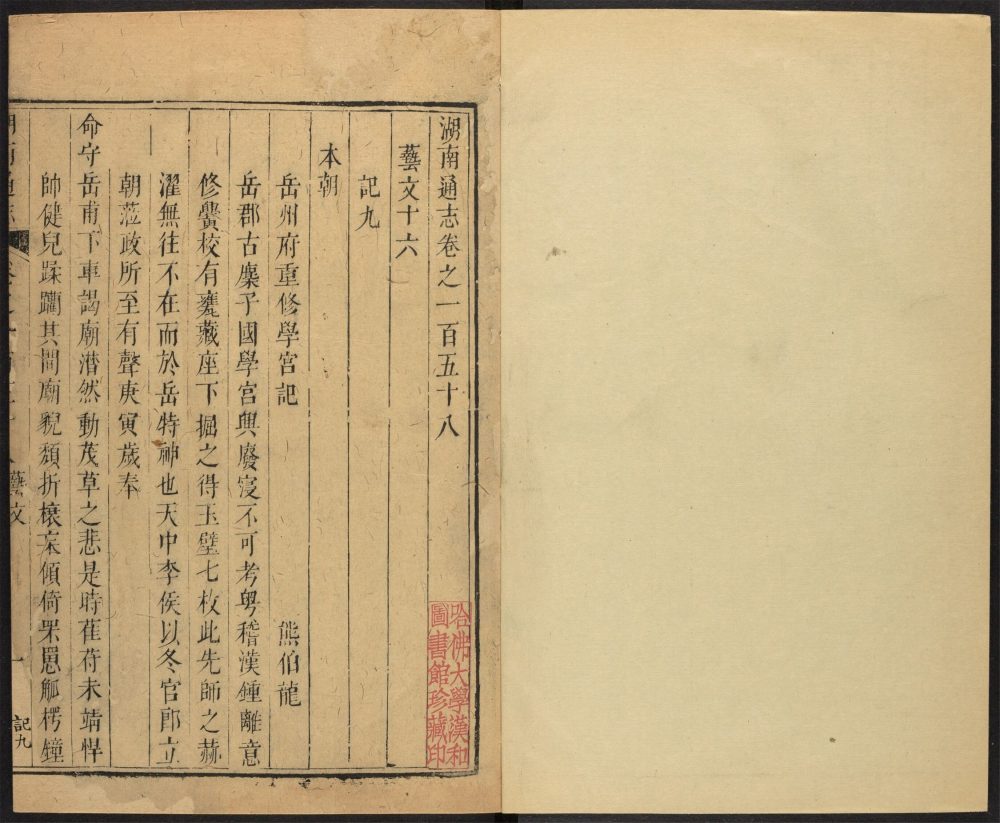 湖南通志卷之一百五十八
藝文十六
記九
本朝
岳州府重修學宮記 熊伯龍
岳郡古麋子國學宮興廢寖不可考粤稽漢鍾離意
修黌校有甕藏座下掘之得玉璧七枚此先師之赫
濯無往不在而於岳特神也天中李侯以冬官郎立
朝蒞政所至有聲庚寅歲奉
命守岳甫下車謁廟潸然動茂草之悲是時萑苻未靖悍
帥健兒蹂躪其間廟貌頹折榱宋傾倚罘罳觚楞鐘
湖南通志 藝文 一 記九
哈佛大學漢和
圖書館珍藏印